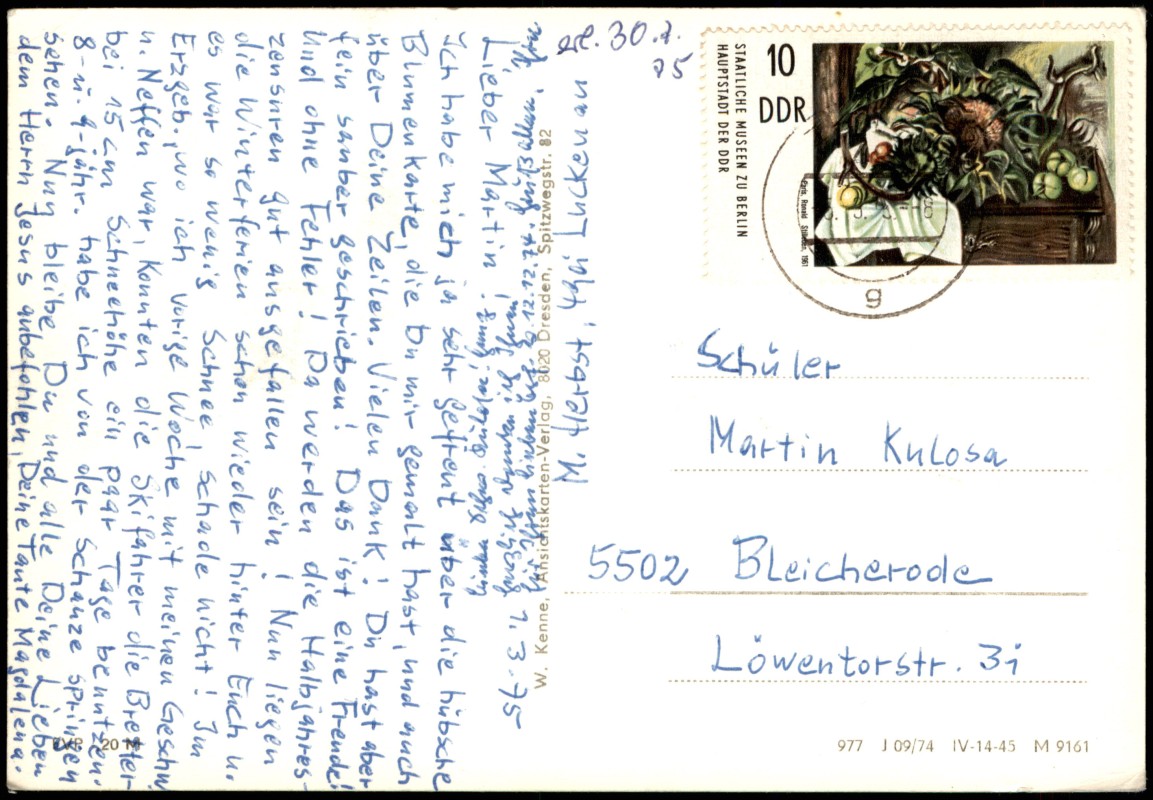 erl. 30.
75
10
DDR
STAATLICHE MUSEEN ZU BERLIN
HAUPTSTADT DER DDR
Paris, Ronald
1961
g
M. Herbst, 4801 Luckenau
Schüler
Martin Kulosa
5502 Bleicherode
Löwentorstr. 3i
1.3.75
Lieber Martin!
Ich habe mich ja sehr gefreut über die hübsche
Blumenkarte, die Du mir gemalt hast, und auch
über Deine Zeilen. Vielen Dank! Du hast aber
fein sauber geschrieben! Das ist eine Freude!
Und ohne Fehler! Da werden die Halbjahres-
zensuren gut ausgefallen sein! Nun liegen
die Winterferien schon wieder hinter Euch u.
es war so wenig Schnee, schade nicht! Im
Erzgeb., wo ich vorige Woche mit meinen Geschw.
u. Neffen war, konnten die Skifahrer die Bretter
bei 15 cm Schneehöhe ein paar Tage benutzen.
8- u. 9-jähr. habe ich von der Schanze springen
sehen. Nun bleibe Du und alle Deine Lieben
dem Herrn Jesus anbefohlen, Deine Tante Magdalena.
W. Kenne, Ansichtskarten-Verlag, 8020 Dresden, Spitzwegstr. 82
EVP 20 M
977 J 09/74 IV-14-45 M 9161